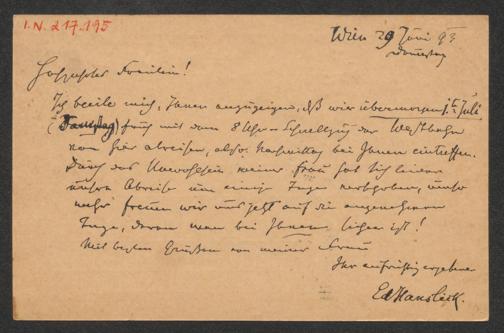 I.N. 217.195
Wien 29 Juni 93
Donnerstag
Hochgeehrtes Fräulein!
Ich beeile mich, Ihnen anzuzeigen, daß wir übermorgen, 1. Juli
(Samstag) früh mit dem 8 Uhr-Schnellzug der Westbahn
von hier abreisen, also Nachmittag bei Ihnen eintreffen.
Durch das Unwohlsein meiner Frau hat sich leider
unsere Abreise um einige Tage verschoben, umso
mehr freuen wir uns jetzt auf die angenehmen
Tage, deren man bei Ihnen sicher ist!
Mit besten Grüßen von meiner Frau
Ihr aufrichtig ergebener
Ed Hanslick.